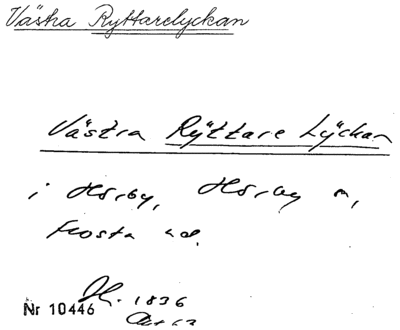 Västra Ryttarelyckan
Västra Ryttare Lyckan
i Hörby, Hörby sn,
Frosta hd.
1836
Nr 10446